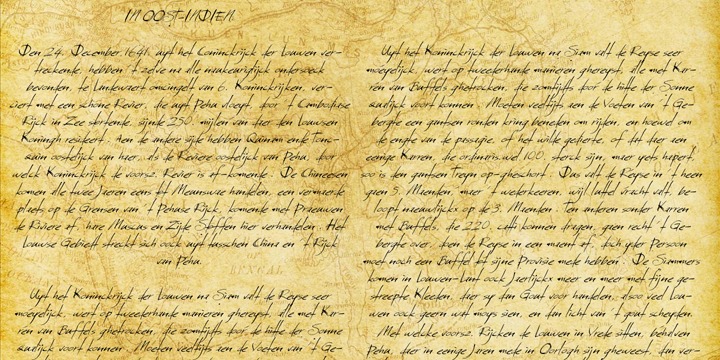 IN OOST-INDIEN.
Den 24. December 1641. uyt het Coninckrijck der Louwen ver-
treckende, hebben 't zelve na alle naukeurigtijck ondersoeck
bevonden, te Landewaert omcingelt van 6. Koninckrijken, ver-
siert met een schone Revier, die uyt Pehu vloept, door 't Cambodiase
Rijck in Zee stortende, sijnde 250. mijlen van hier den Louwsen
Koningh resideert. Aen de andere sijde hebben Quinamende Tonc-
quin oostelijck van haer, als de Reviere oostelijck van Pehu, door
welck Koninckrijck de voorsz. Revier is af-komende. De Chineesen
komen alle twee Jaeren eens af Meunswae handelen, een vermaerde
plaets op de Grensen van 't Pehuse Rijck, komende met Praeuwen
de Riviere af, hare Muscus en Zijde Stoffen hier verhandelen. Het
Louwse Gebiett streckt sich oock uyt tusschen China en 't Rijck
van Pehu.
Uyt het Koninckrijck der Louwen na Siam valt de Reyse seer
moeyelijck, wert op tweederhande manieren ghereyst, als met Kar-
ren van Buffels ghetrocken, die zomtijts door de hitte der Sonne
qualijck voort konnen. Moeten veeltijts aen de Voeten van 't Ge-
Uyt het Koninckrijck der Louwen na Siam valt de Reyse seer
moeyelijck, wert op tweederhande manieren ghereyst, alle met Kar-
ren van Buffels ghetrocken, die zomtijts door de hitte der Sonne
qualijck voort konnen. Moeten veeltijts aen de Voeten van 't Ge-
bergte een gantsen ronden kring beneden om rijden, en hoewel om
de engte van de passagie, of het wilde gedierte, of dat daer een
eenige Karren, die ordinaris wel 100. sterck sijn, maer yets hapert,
soo is den gantsen Treyn op-gheschort. Dus valt de Reyse in 't heen
gaen 5. Maenden, maer 't wederkeeren, wijl luttel vracht valt, be-
loopt naeuwlijckx op de 3. Maenden. Ten anderen sonder Karren
met Buffels, die 220. catti konnen dragen, gaen recht 't Ge-
bergte over, doen de Reyse in een maent af, doch yder Persoon
moet noch een Buffel tot sijne Provisie mede hebben. De Siammers
komen in Louwen-Lant oock Jaerlijckx meer en meer met fijne ge-
streepte Kleeden, daer sy dan Gout voor handelen, alsoo veel Lou-
wen oock geern wat moys sien, en dan licht van 't gout schepden.
Met welcke voorsz. Rijcken de Louwen in Vrede sitten, behalven
Pehu, daer in eenige Jaren mede in Oorlogh sijn gheweest, dan ver-
BENGAL